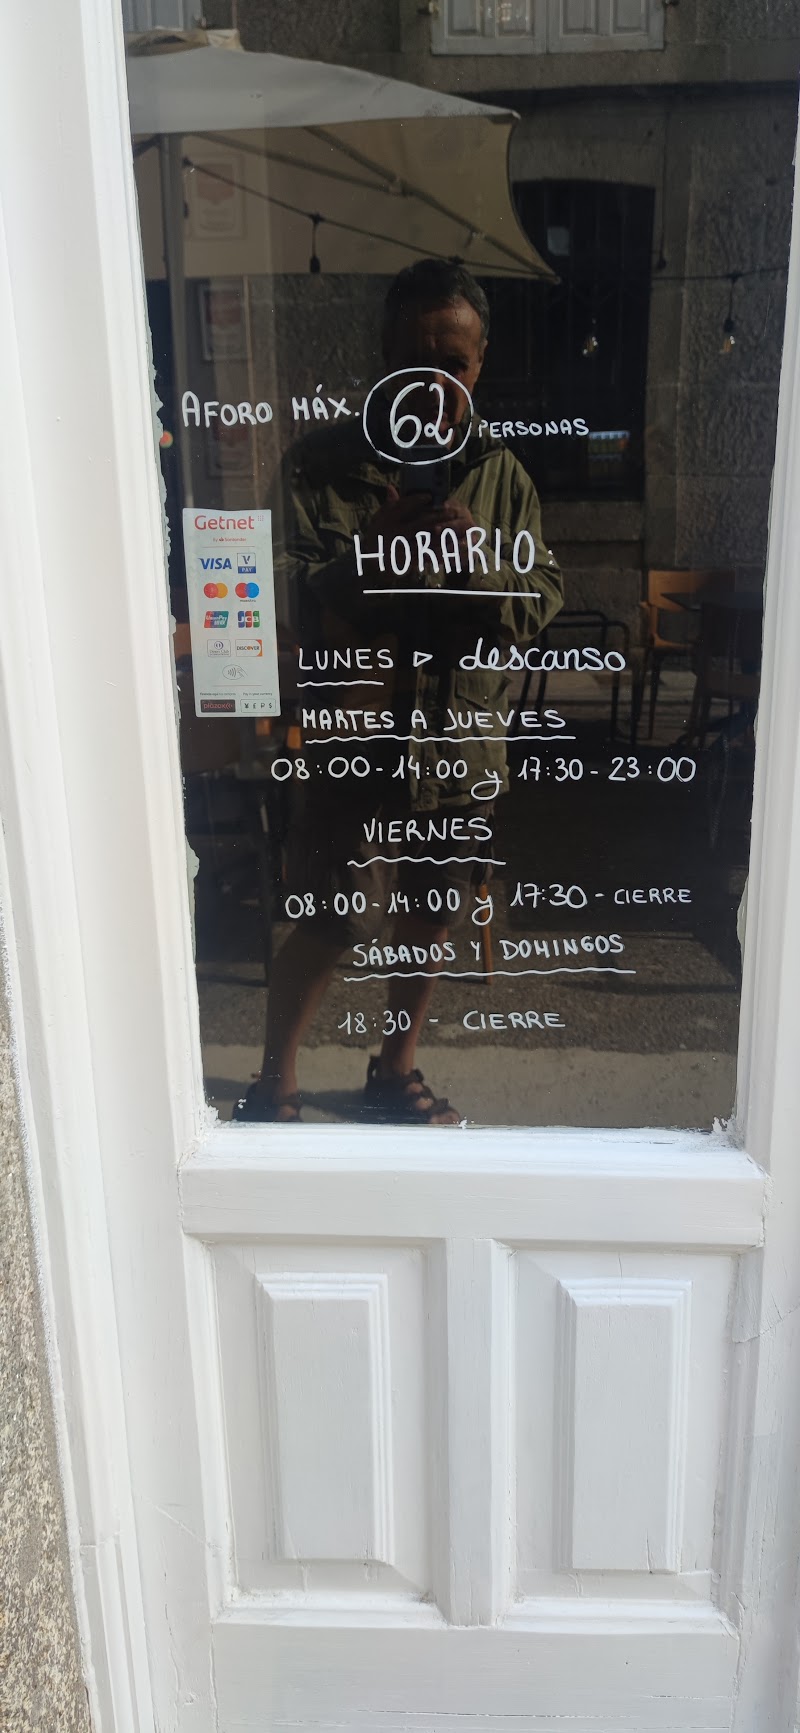 AFORO MÁX. 62 PERSONAS
Getnet
by Santander
VISA V PAY
UnionPay JCB
DISCOVER
HORARIO:
LUNES ▷ descanso
MARTES A JUEVES
08:00-14:00 y 17:30-23:00
VIERNES
08:00-14:00 y 17:30-CIERRE
SÁBADOS Y DOMINGOS
18:30 - CIERRE